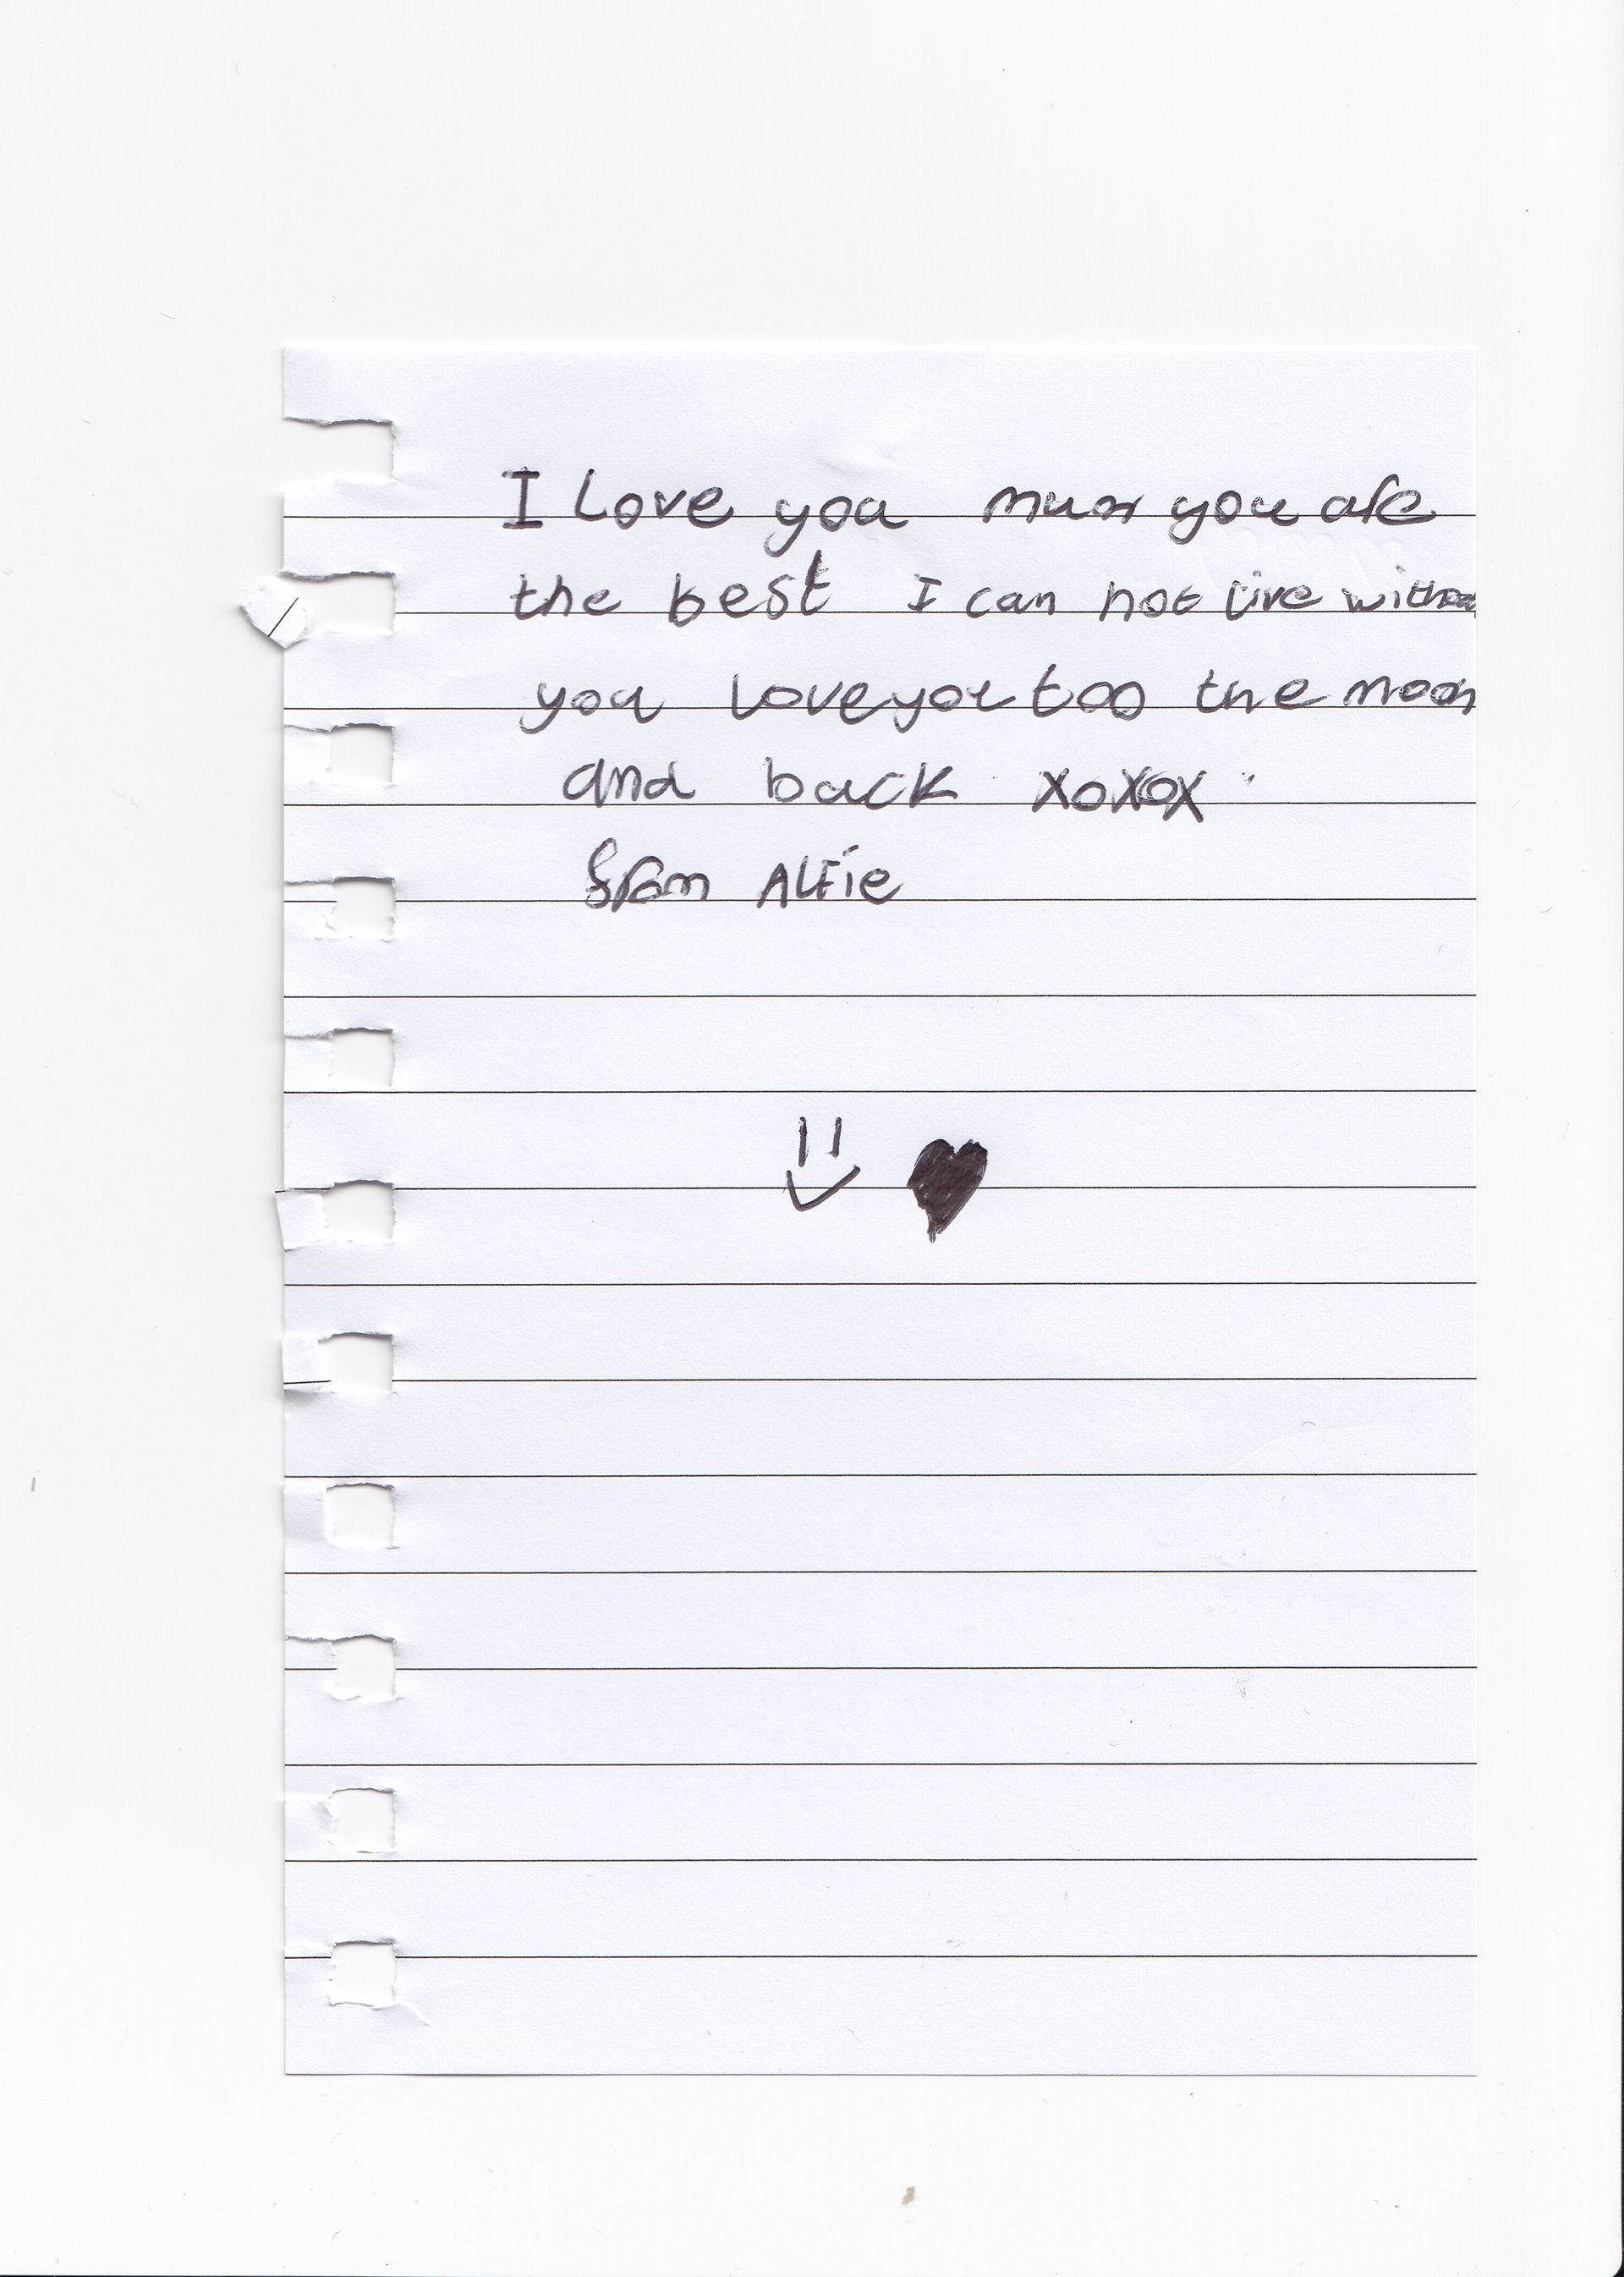 I Love you mum you are
the best I can not live without
you love you too the moon
and back xoxox
from Alfie